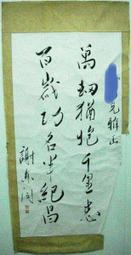 元雅正
萬劫猶抱千里志
百歲功名半紀昌
謝東閔